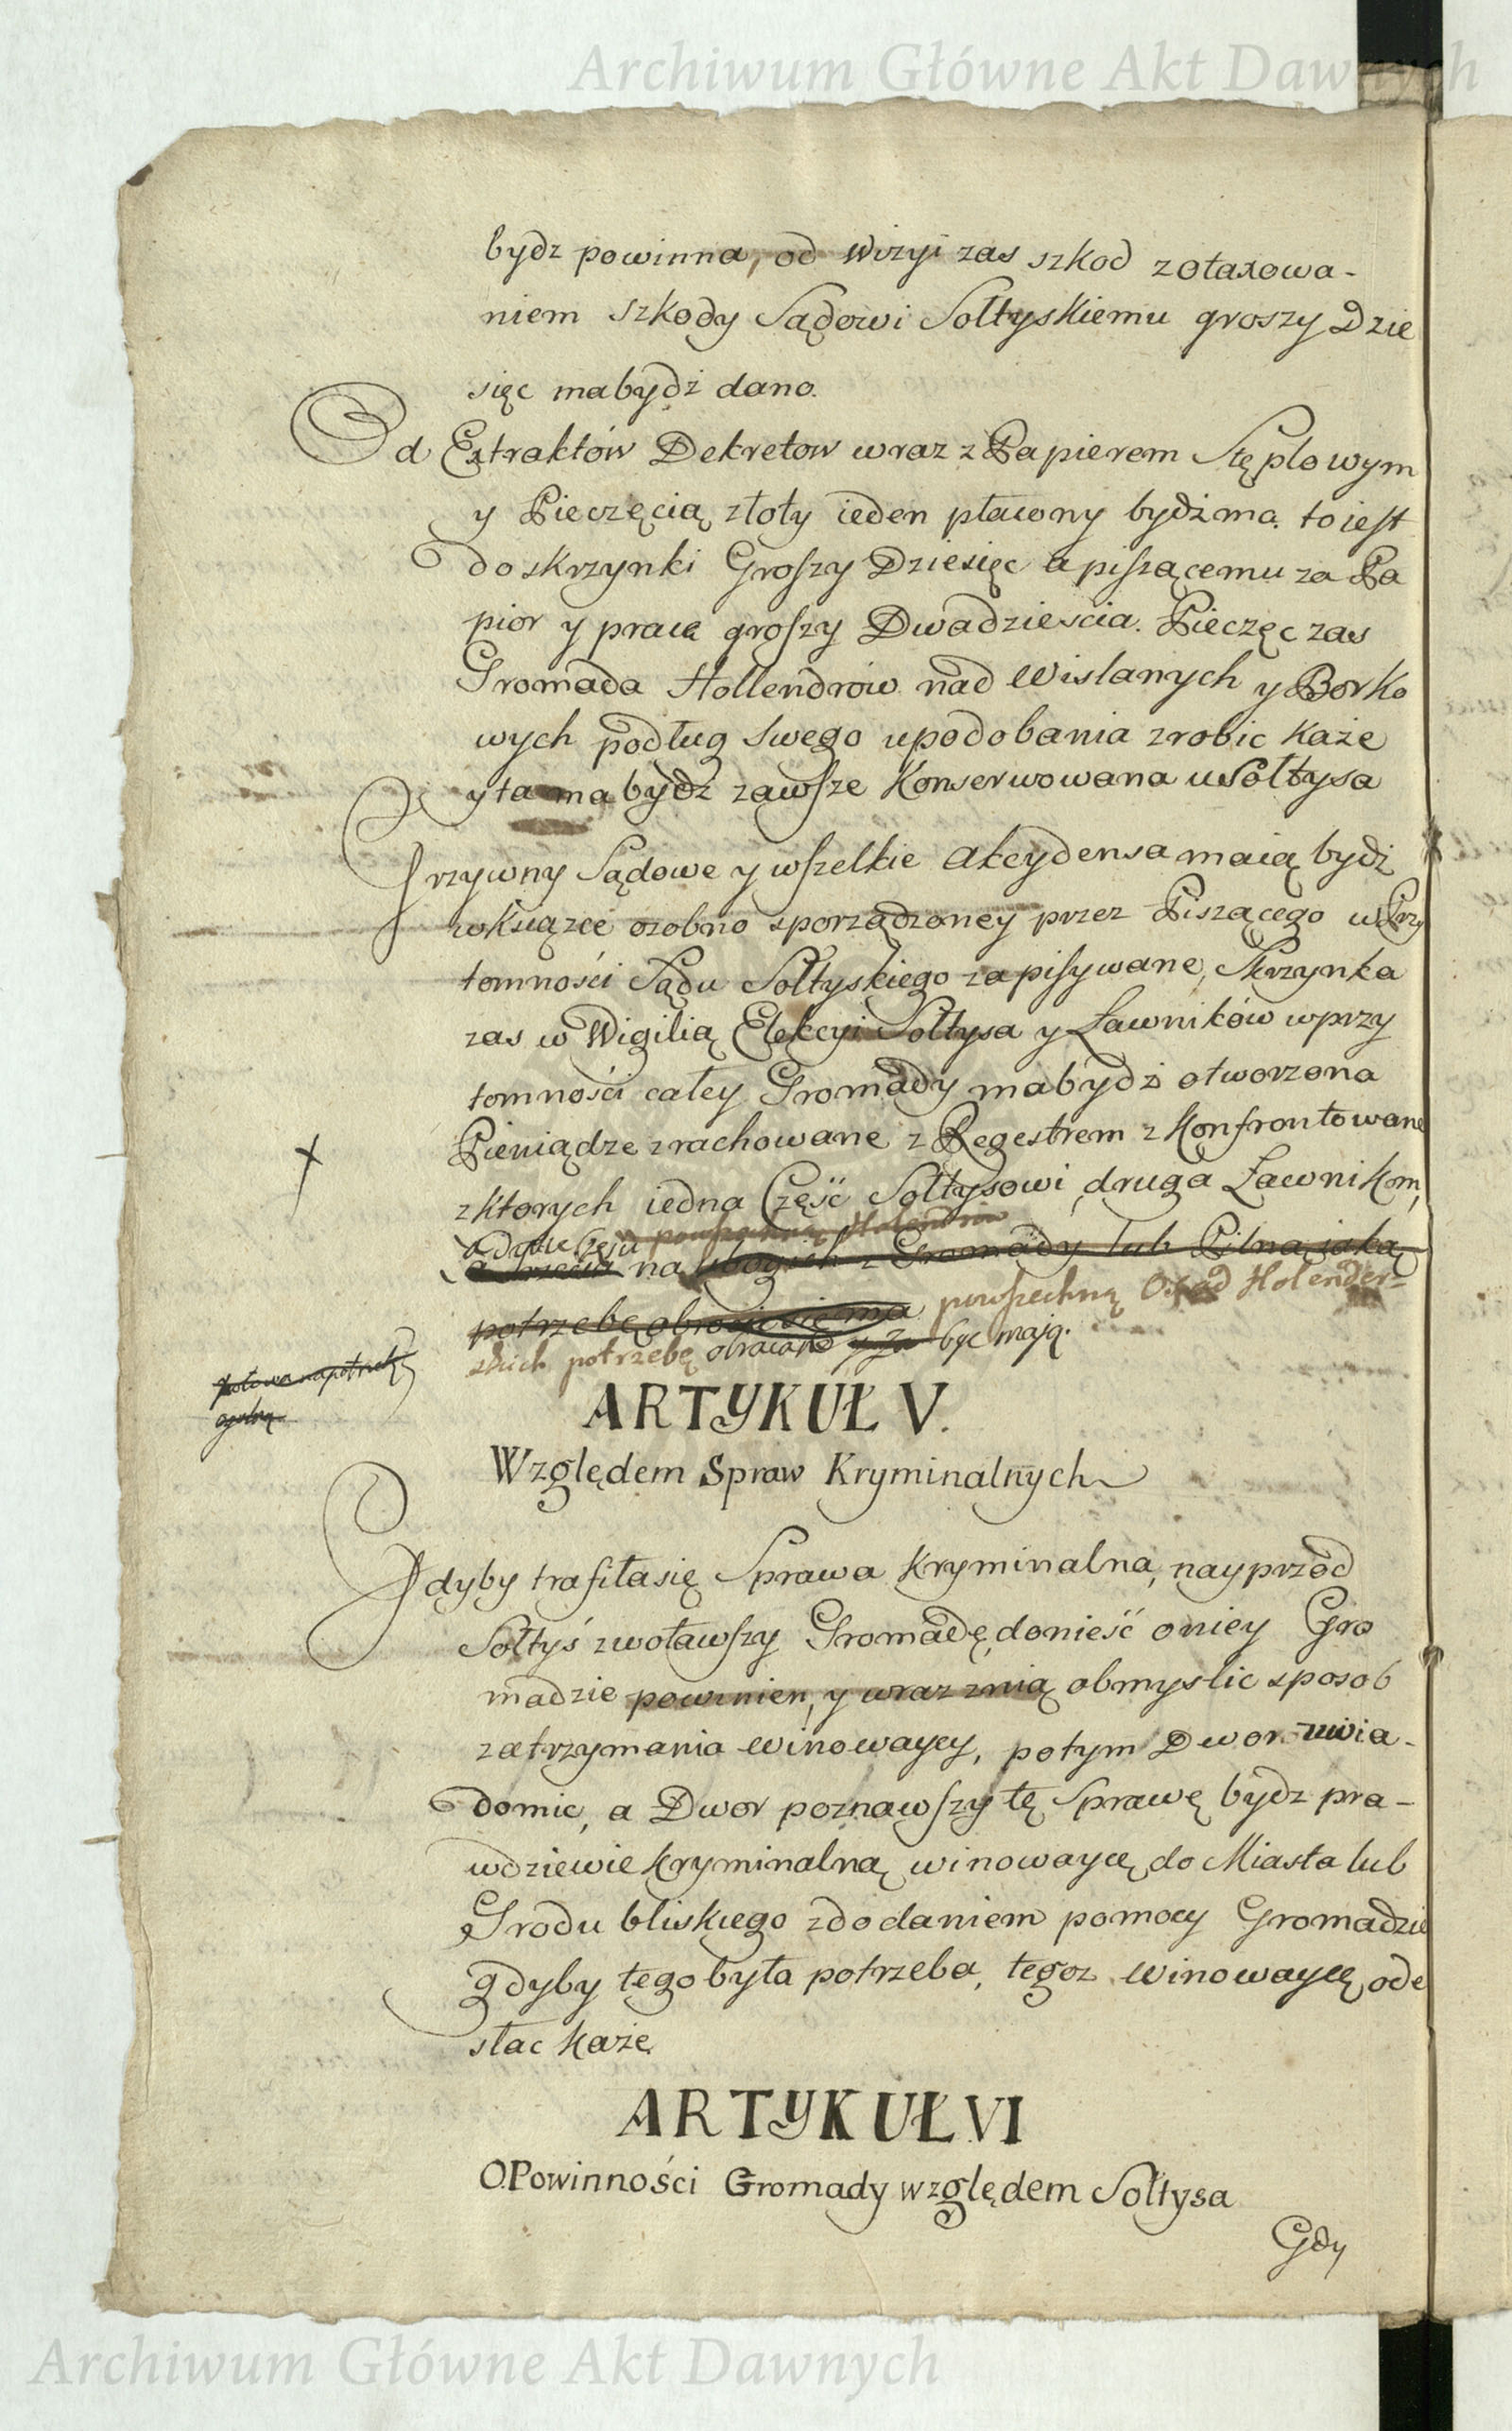 Archiwum Główne Akt Dawnych
bydz powinna, od Wizyi zas szkod z otaxowa-
niem szkody Sądowi Sołtyskiemu groszy Dzie
sięc ma bydź dano.
Od Extraktów Dekretow wraz z Papierem Stęplowym
y Pieczęcią złoty ieden płacony bydź ma. to iest
do skrzynki Groszy Dziesięc a piszącemu za Pa
pior y prace groszy Dwadziescia. Pieczęc zas
Gromada Hollendrów nad Wislanych y Borko
wych podług swego upodobania zrobic każe
y ta ma bydź zawsze Konserwowana u Sołtysa
Grzywny Sądowe y wszelkie Akcydensa maią bydź
w ksiązce osobno sporządzoney przez Piszącego w Przy
tomności Sądu Sołtyskiego zapisywane, Skrzynka
zas w Wigilią Elekcyi Sołtysa y Ławników w przy
tomności całey Gromady ma bydź otworzona
Pieniądze zrachowane z Regestrem zkonfrontowane
z ktorych iedna Część Sołtysowi druga Ławnikom,
a dwie części powszechną Holendrow
a trzecia na ubogich z Gromady lub Pilną iaką
potrzebę obrocic się ma powszechną Osad Holender-
skich potrzebę obracane być mają.
połowa na potrzebę
ogulną
ARTYKUŁ V.
Względem Spraw Kryminalnych
Gdyby trafiła się Sprawa Kryminalna, nayprzod
Sołtyś zwoławszy Gromadę, donieść o niey Gro
madzie powinien, y wraz z nią obmyslic sposob
zatrzymania winowaycy, potym Dwor uwia-
domic, a Dwor poznawszy tę Sprawę bydz pra-
wdziewie kryminalną winowaycę do Miasta lub
Grodu bliskiego z dodaniem pomocy Gromadzie
gdyby tego była potrzeba, tegoz winowaycę ode
słac każe.
ARTYKUŁ VI
O Powinności Gromady względem Sołtysa
Gdy
Archiwum Główne Akt Dawnych